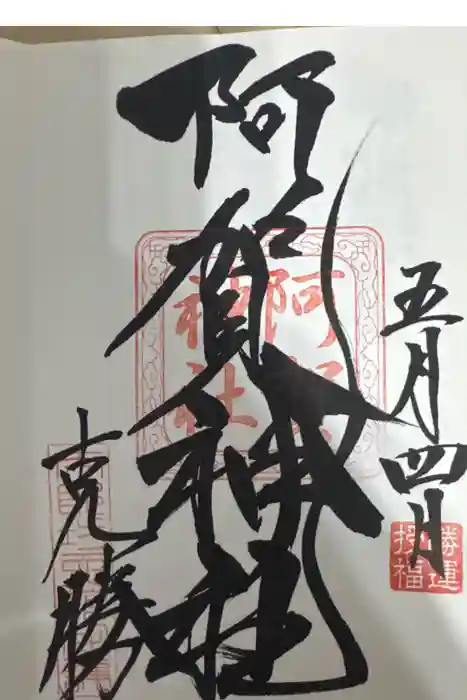 五月四月
勝運
授福
阿賀神社
阿賀
神社
克勝